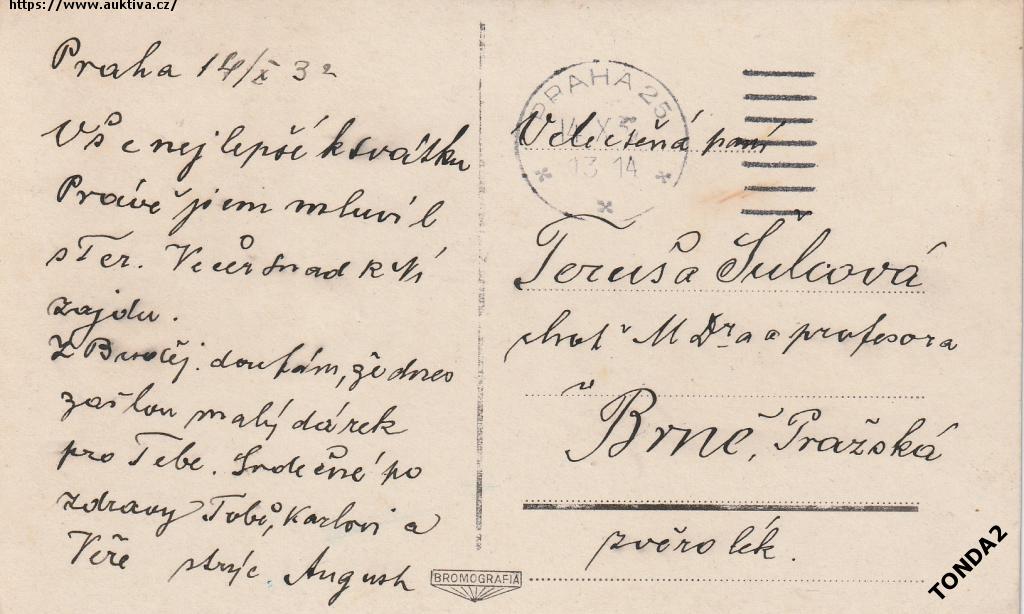 https://www.auktiva.cz/
Praha 14/X 32
Vše nejlepší k svátku
Právě jsem mluvil
s Ter. Večer snad k Ní
zajdu.
Z doufám, že dnes
zašlou malý dárek
pro Tebe. Srdečné po
zdravy Tobě, Karlovi a
Věře strýc August
PRAHA 25
14 X 3
13 14
Velectěná paní
Teruša Šulcová
choť MDra a profesora
v
Brně, Pražská
zvěrolék.
BROMOGRAFIA
TONDA2